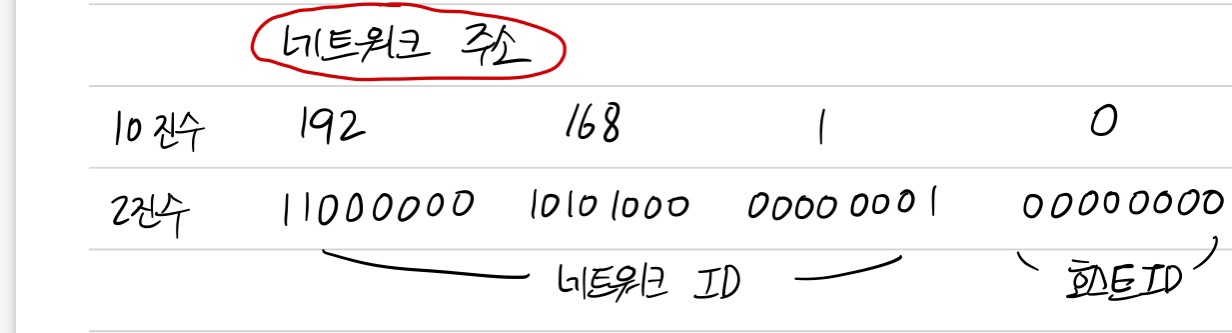 네트워크 주소
10진수 192 168 1 0
2진수 11000000 10101000 00000001 00000000
네트워크 ID 호스트ID